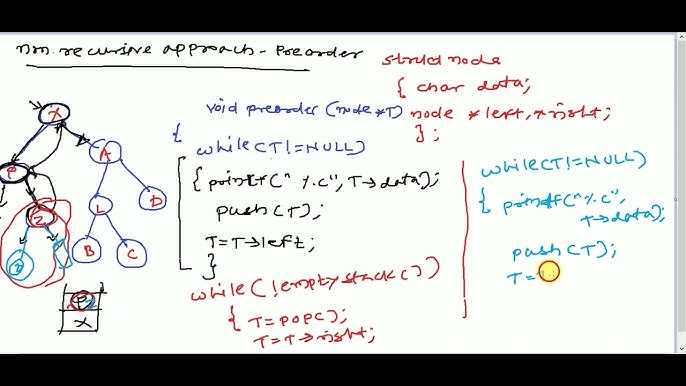 non. recursive approach - Preorder
struct node
{ char data;
node *left, *right;
};
void preorder (node *T)
{
while(T!=NULL)
{ printf("%c", T→data);
push(T);
T=T→left;
}
while(!emptystack())
{ T=pop();
T=T→right;
while(T!=NULL)
{ printf("%c",
T→data);
push(T);
T=
X
A
P
Z
L
D
B
C
P
X